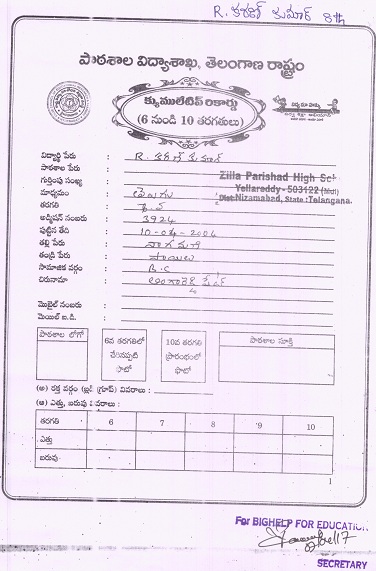 R. కిరణ్ కుమార్ 8th
పాఠశాల విద్యాశాఖ, తెలంగాణ రాష్ట్రం
క్యుములేటివ్ రికార్డు
(6 నుండి 10 తరగతులు)
విద్యార్థి పేరు : R. కిరణ్ కుమార్
పాఠశాల పేరు : Zilla Parishad High Sch
గుర్తింపు సంఖ్య : Yellareddy - 503122 (Mdl)
మాధ్యమం : తెలుగు Dist. Nizamabad, State : Telangana.
తరగతి :
అడ్మిషన్ నంబరు : 3924
పుట్టిన తేది : 10-04-2004
తల్లి పేరు : నాగమణి
తండ్రి పేరు : సాయిలు
సామాజిక వర్గం : B.C
చిరునామా :
మొబైల్ నంబరు :
మెయిల్ ఐ.డి. :
పాఠశాల లోగో
6వ తరగతిలో చేరినప్పటి ఫొటో
10వ తరగతి ప్రారంభంలో ఫొటో
పాఠశాల సూక్తి
(అ) రక్త వర్గం (బ్లడ్ గ్రూప్) వివరాలు :
(ఆ) ఎత్తు, బరువు వివరాలు :
తరగతి 6 7 8 9 10
ఎత్తు
బరువు
1
For BIGHELP FOR EDUCATION
SECRETARY